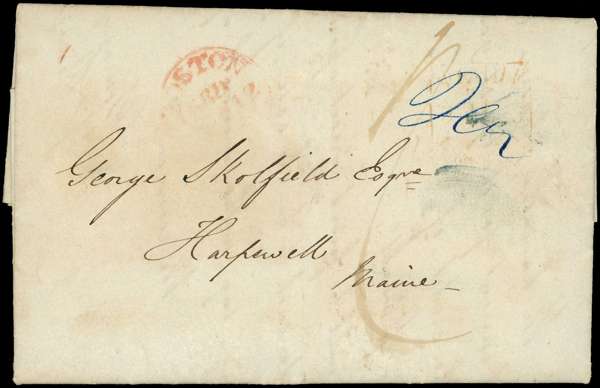 BOSTON
George Skolfield Esqre
Harpswell
Maine